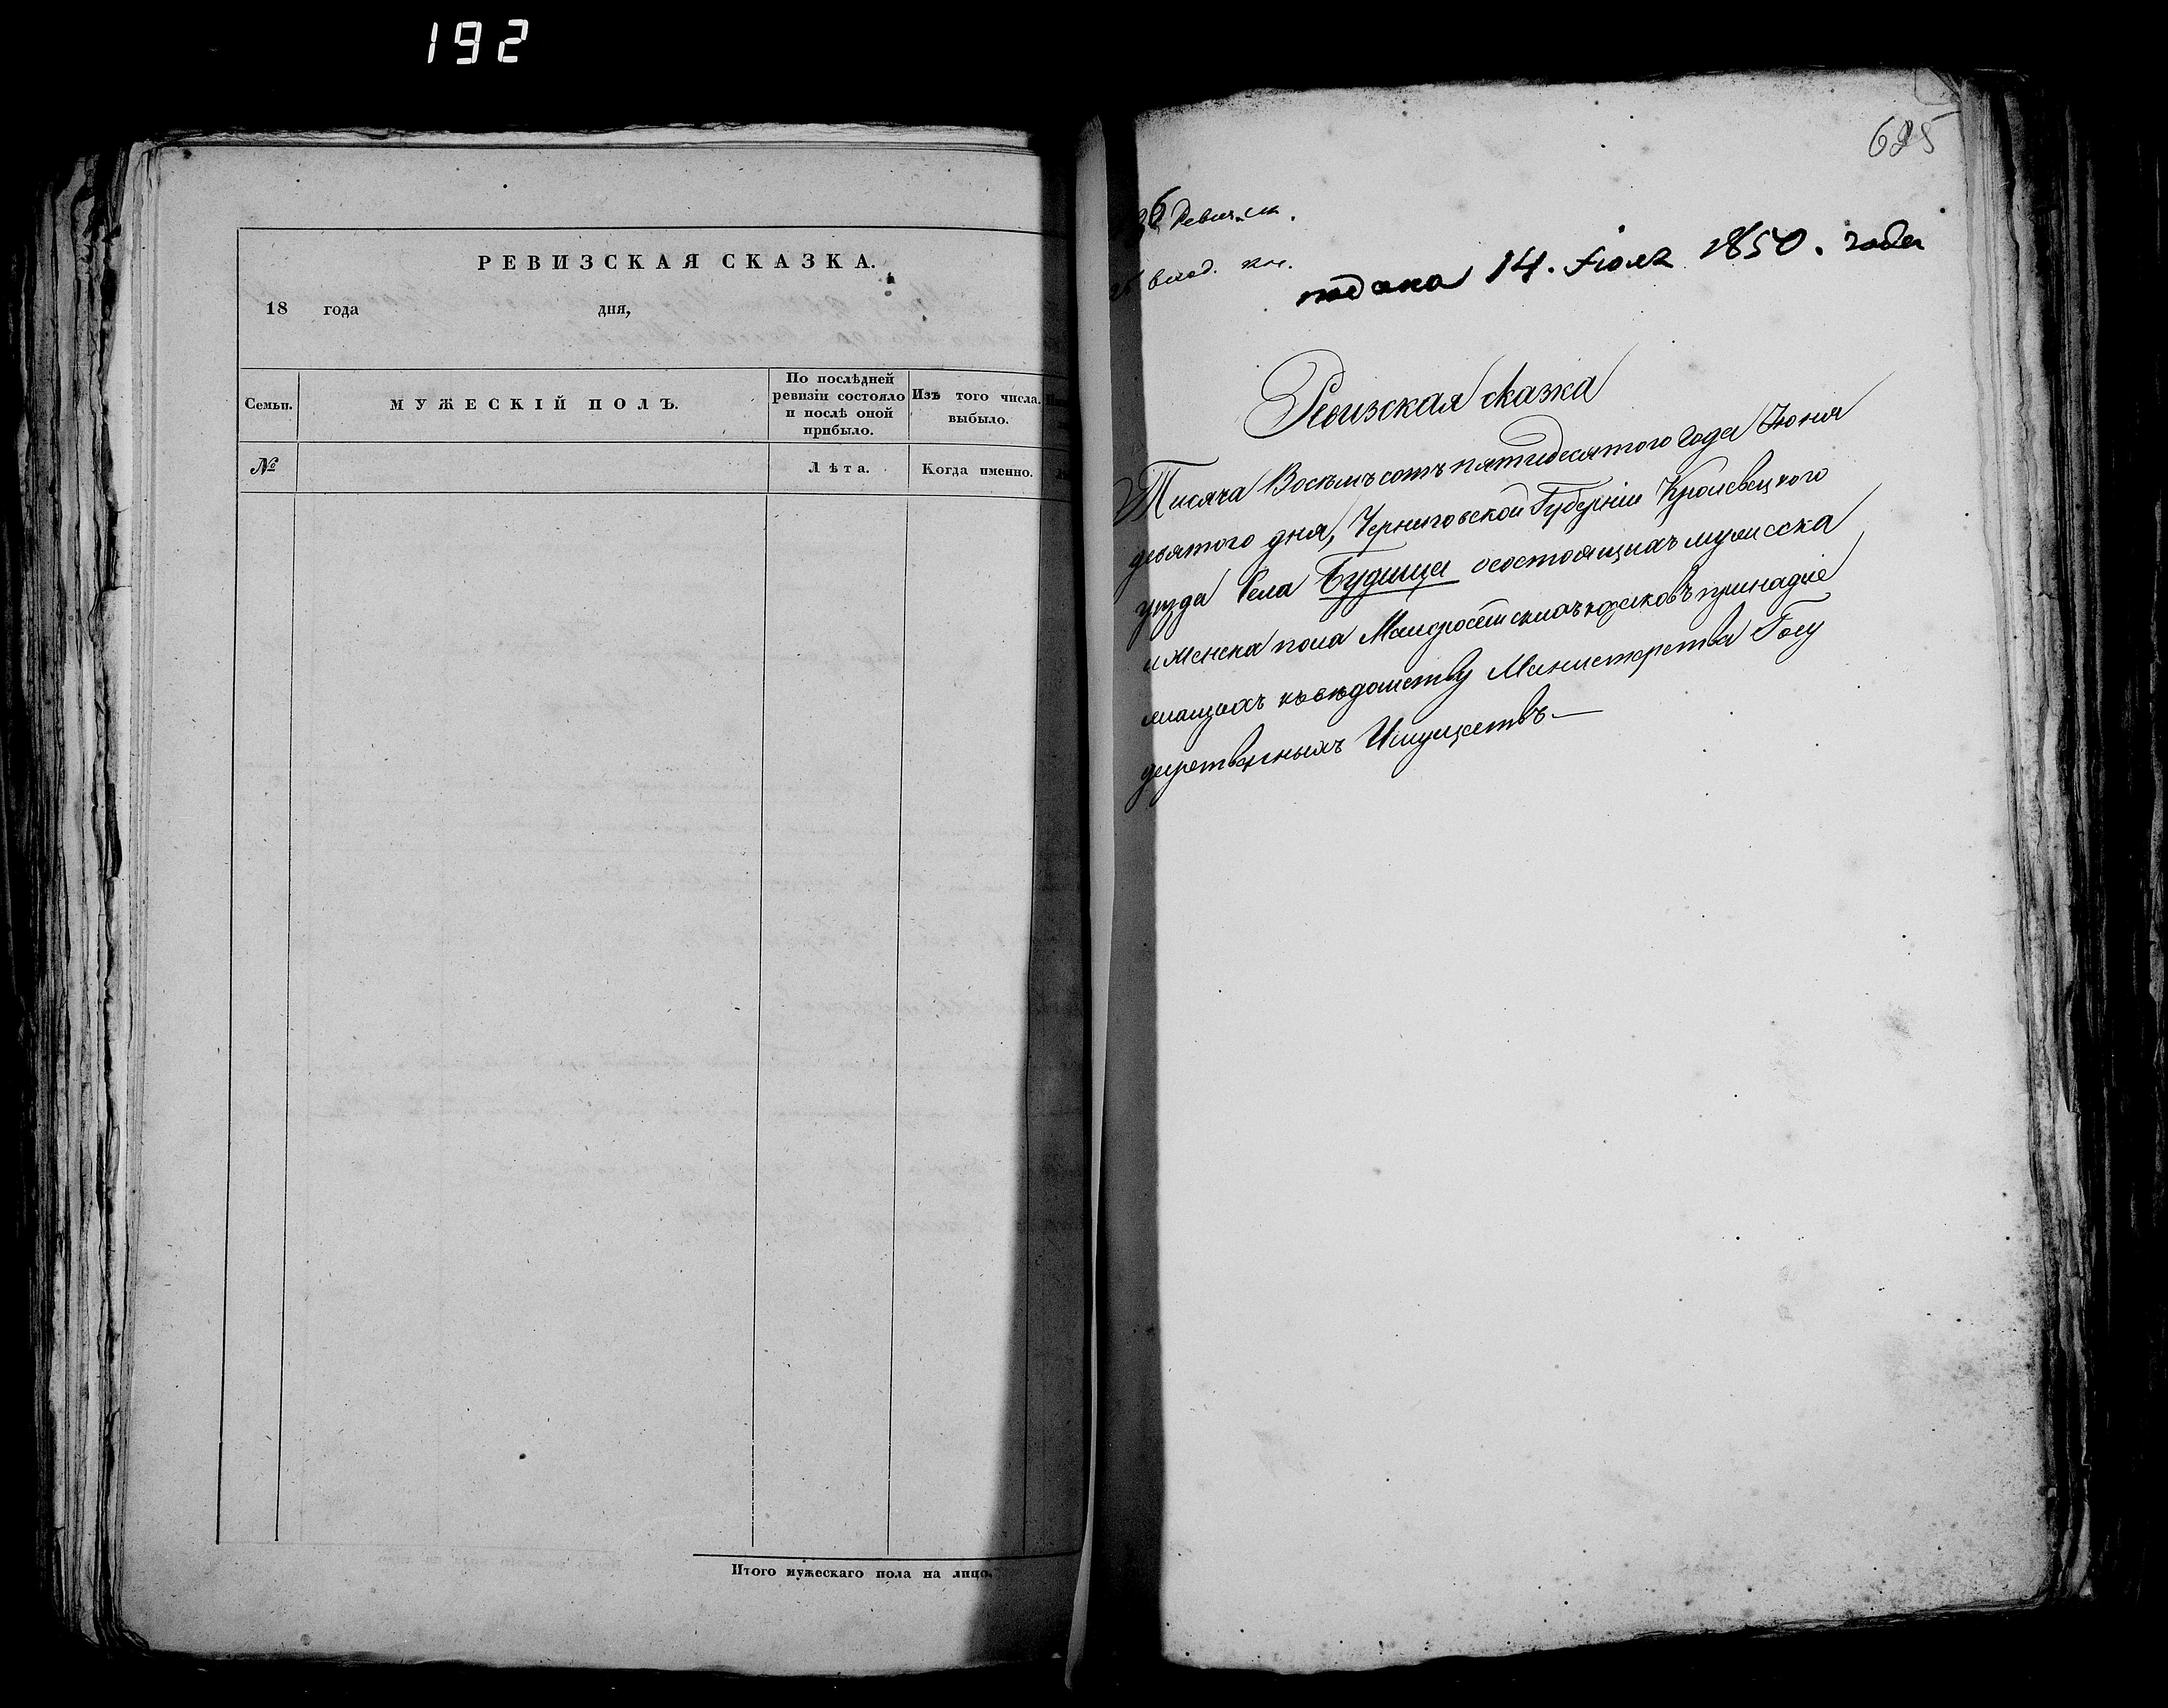 192
РЕВИЗСКАЯ СКАЗКА.
18 года дня,
Семьи.
МУЖЕСКІЙ ПОЛЪ.
По послѣдней
ревизіи состояло
и послѣ оной
прибыло.
Изъ того числа
выбыло.
№
Лѣта.
Когда именно.
Итого мужескаго пола на лицо.
695
подана 14. Іюля 1850. года
Ревизская сказка
Тисяча Восемъсотъ пятидесятого года Іюня
девятого дня, Черниговской Губерніи Кролевецкого
уезда Села Будища осостоящихъ мужеска
и женска пола Малоросейскихъ козаковъ принадле
жащихъ къ ведомству Министерства Госу
дарственныхъ Имуществъ —